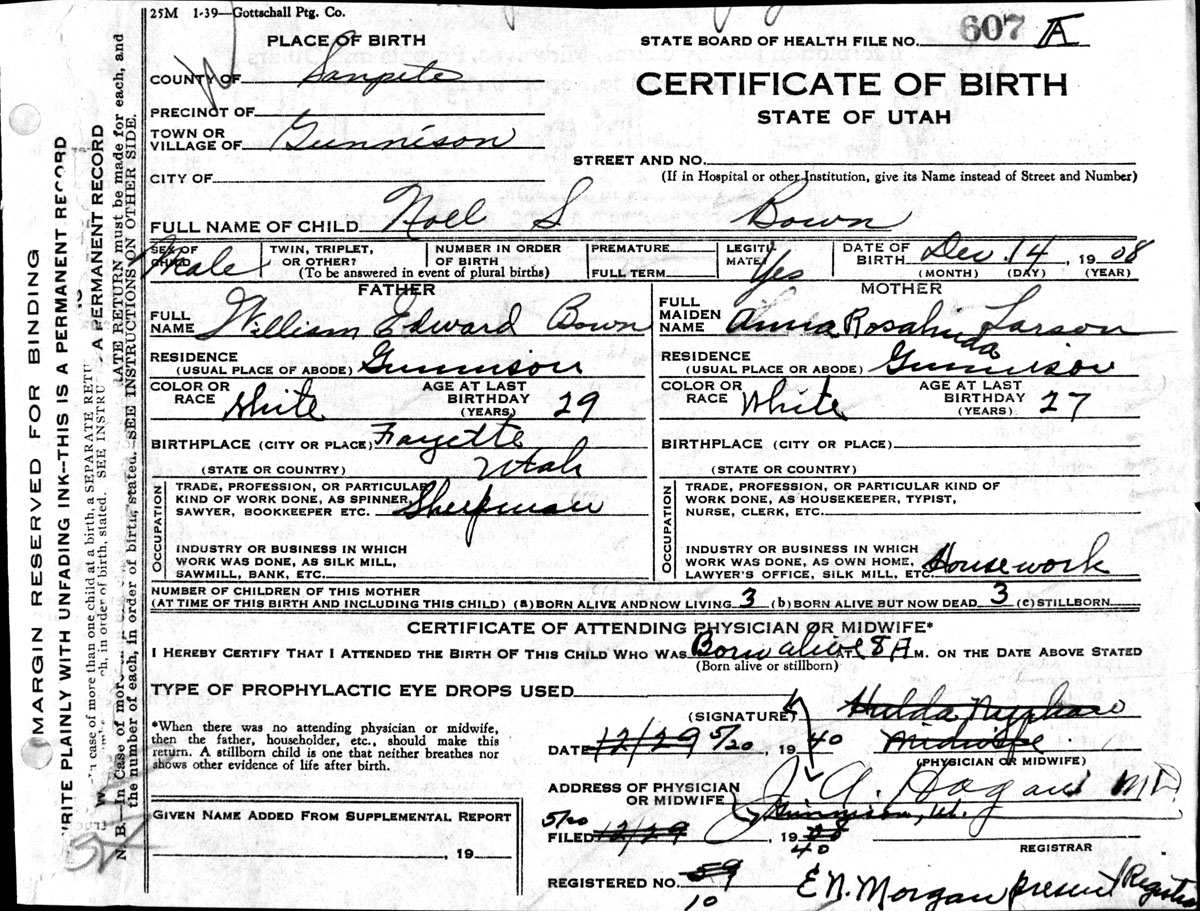 25M 1-39—Gottschall Ptg. Co.
PLACE OF BIRTH
STATE BOARD OF HEALTH FILE NO. 607 A
COUNTY OF Sanpete
CERTIFICATE OF BIRTH
STATE OF UTAH
PRECINCT OF
TOWN OR VILLAGE OF Gunnison
STREET AND NO.
CITY OF
(If in Hospital or other Institution, give its Name instead of Street and Number)
FULL NAME OF CHILD Noel S Bown
SEX OF CHILD Male
TWIN, TRIPLET, OR OTHER?
NUMBER IN ORDER OF BIRTH
(To be answered in event of plural births)
PREMATURE
FULL TERM
LEGITIMATE Yes
DATE OF BIRTH Dec. 14, 1908
(MONTH) (DAY) (YEAR)
FATHER
FULL NAME William Edward Bown
RESIDENCE (USUAL PLACE OF ABODE) Gunnison
COLOR OR RACE White
AGE AT LAST BIRTHDAY (YEARS) 29
BIRTHPLACE (CITY OR PLACE) Fayette
(STATE OR COUNTRY) Utah
OCCUPATION
TRADE, PROFESSION, OR PARTICULAR
KIND OF WORK DONE, AS SPINNER,
SAWYER, BOOKKEEPER ETC. Sheepman
INDUSTRY OR BUSINESS IN WHICH
WORK WAS DONE, AS SILK MILL,
SAWMILL, BANK, ETC.
MOTHER
FULL MAIDEN NAME Anna Rosalinda Larson
RESIDENCE (USUAL PLACE OR ABODE) Gunnison
COLOR OR RACE White
AGE AT LAST BIRTHDAY (YEARS) 27
BIRTHPLACE (CITY OR PLACE)
(STATE OR COUNTRY)
OCCUPATION
TRADE, PROFESSION, OR PARTICULAR KIND OF
WORK DONE, AS HOUSEKEEPER, TYPIST,
NURSE, CLERK, ETC.
INDUSTRY OR BUSINESS IN WHICH
WORK WAS DONE, AS OWN HOME,
LAWYER'S OFFICE, SILK MILL, ETC. Housework
NUMBER OF CHILDREN OF THIS MOTHER
(AT TIME OF THIS BIRTH AND INCLUDING THIS CHILD) (a) BORN ALIVE AND NOW LIVING 3 (b) BORN ALIVE BUT NOW DEAD 3 (c) STILLBORN
CERTIFICATE OF ATTENDING PHYSICIAN OR MIDWIFE*
I HEREBY CERTIFY THAT I ATTENDED THE BIRTH OF THIS CHILD WHO WAS Born alive AT 8 A M. ON THE DATE ABOVE STATED
(Born alive or stillborn)
TYPE OF PROPHYLACTIC EYE DROPS USED
*When there was no attending physician or midwife,
then the father, householder, etc., should make this
return. A stillborn child is one that neither breathes nor
shows other evidence of life after birth.
(SIGNATURE) Hulda
DATE 12/29 5/20, 1940 Midwife
(PHYSICIAN OR MIDWIFE)
ADDRESS OF PHYSICIAN OR MIDWIFE J. A. Hagan MD
Gunnison, Ut.
FILED 12/29 5/20 1908 40
REGISTRAR
REGISTERED NO. 59 10
E N. Morgan present Registrar
GIVEN NAME ADDED FROM SUPPLEMENTAL REPORT
, 19
MARGIN RESERVED FOR BINDING
WRITE PLAINLY WITH UNFADING INK--THIS IS A PERMANENT RECORD
A PERMANENT RECORD
N. B.—In case of more than one child at a birth, a SEPARATE RETURN must be made for each, and
the number of each, in order of birth, stated. SEE INSTRUCTIONS ON OTHER SIDE.